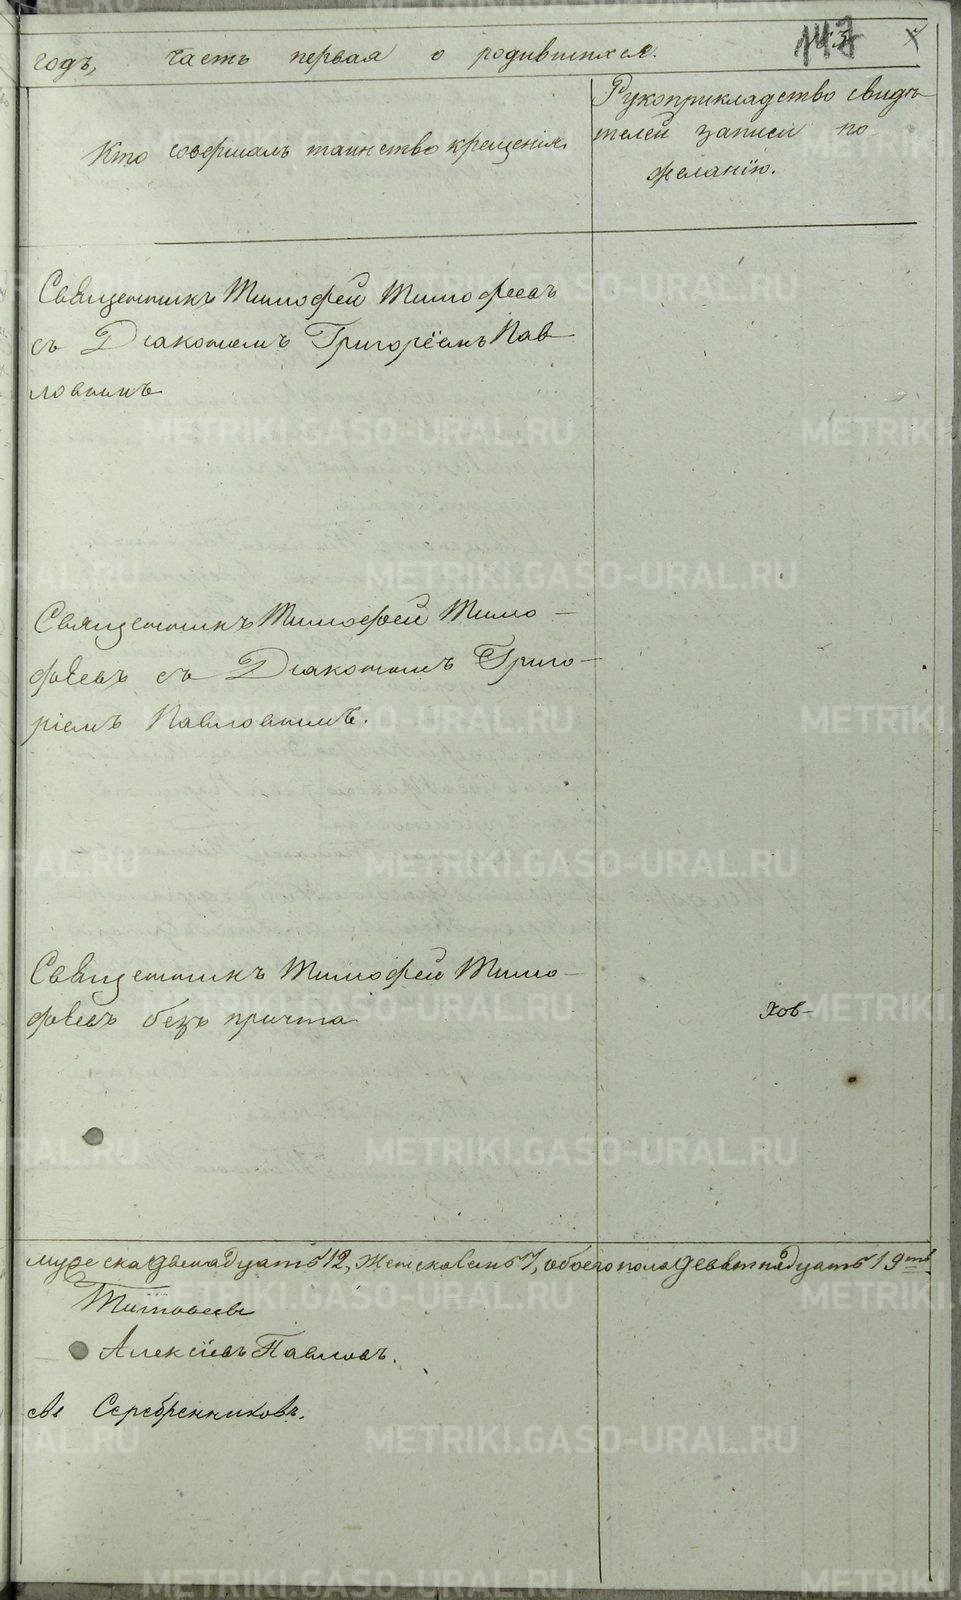 годъ, часть первая о родившихся.
143
Кто совершалъ таинство крещенія.
Рукоприкладство свидѣ-
телей записи по
желанію.
Священникъ Тимофей Тимофеевъ
съ Діакономъ Григоріемъ Пав
ловымъ
Священникъ Тимофей Тимо-
фѣевъ съ Діакономъ Григо-
ріемъ Павловымъ.
Священникъ Тимофей Тимо-
фѣевъ безъ причта
хов-
мужеска двенадцать 12, женска семь 7, обоего пола девятнадцать 19ть
Тимофеевъ
Алексѣевъ Павловъ.
Серебренниковъ.
METRIKI.GASO-URAL.RU